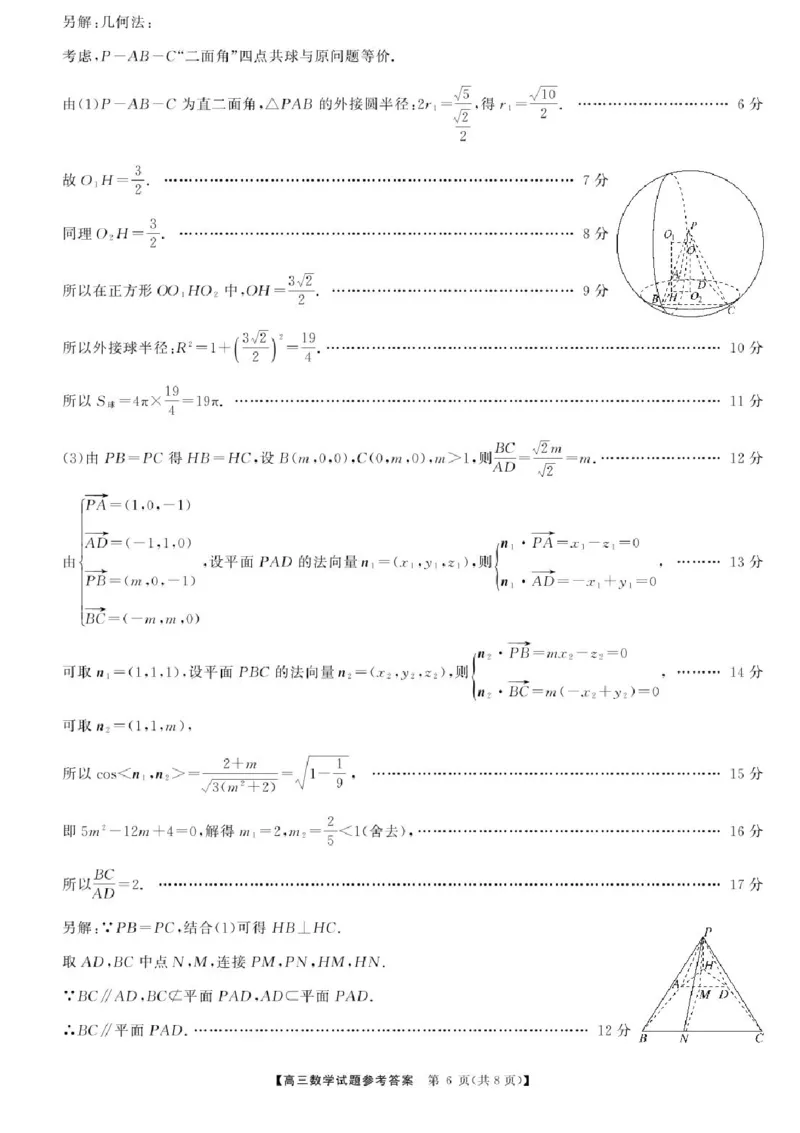 另解:几何法:
考虑,P-AB-C“二面角”四点共球与原问题等价.
由(1)P-AB-C 为直二面角,△PAB 的外接圆半径:2r₁=√5/(√2/2),得 r₁=√10/2. …… 6 分
故 O₁H=3/2. …… 7 分
同理 O₂H=3/2. …… 8 分
所以在正方形 OO₁HO₂ 中,OH=3√2/2. …… 9 分
所以外接球半径:R²=1+(3√2/2)²=19/4. …… 10 分
所以 S球=4π×19/4=19π. …… 11 分
P
O₁
O
A
D
B
H
O₂
C
(3)由 PB=PC 得 HB=HC,设 B(m,0,0),C(0,m,0),m>1,则BC/AD=√2m/√2=m. …… 12 分
由{PA=(1,0,-1)
AD=(-1,1,0)
PB=(m,0,-1)
BC=(-m,m,0)
,设平面 PAD 的法向量 n₁=(x₁,y₁,z₁),则{n₁·PA=x₁-z₁=0
n₁·AD=-x₁+y₁=0
, …… 13 分
可取 n₁=(1,1,1),设平面 PBC 的法向量 n₂=(x₂,y₂,z₂),则{n₂·PB=mx₂-z₂=0
n₂·BC=m(-x₂+y₂)=0
, …… 14 分
可取 n₂=(1,1,m),
所以 cos<n₁,n₂>=(2+m)/√(3(m²+2))=√(1-1/9), …… 15 分
即 5m²-12m+4=0,解得 m₁=2,m₂=2/5<1(舍去), …… 16 分
所以BC/AD=2. …… 17 分
另解:∵PB=PC,结合(1)可得 HB⊥HC.
取 AD,BC 中点 N,M,连接 PM,PN,HM,HN.
∵BC∥AD,BC⊄平面 PAD,AD⊂平面 PAD.
∴BC∥平面 PAD. …… 12 分
P
H
A
M
D
B
N
C
【高三数学试题参考答案 第 6 页(共 8 页)】